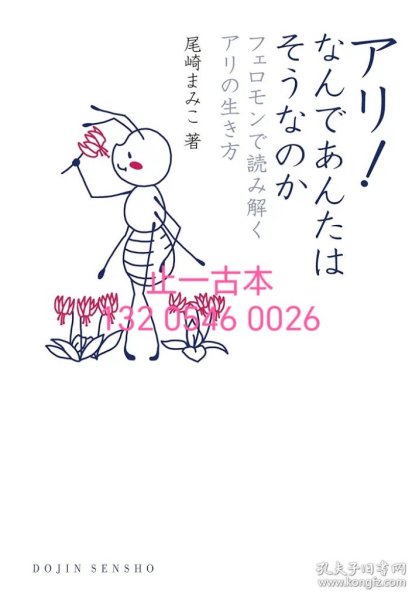 アリ!
なんであんたは
そうなのか
フェロモンで読み解く
アリの生き方
尾崎まみこ 著
止一古本
132 0546 0026
DOJIN SENSHO
孔夫子旧书网